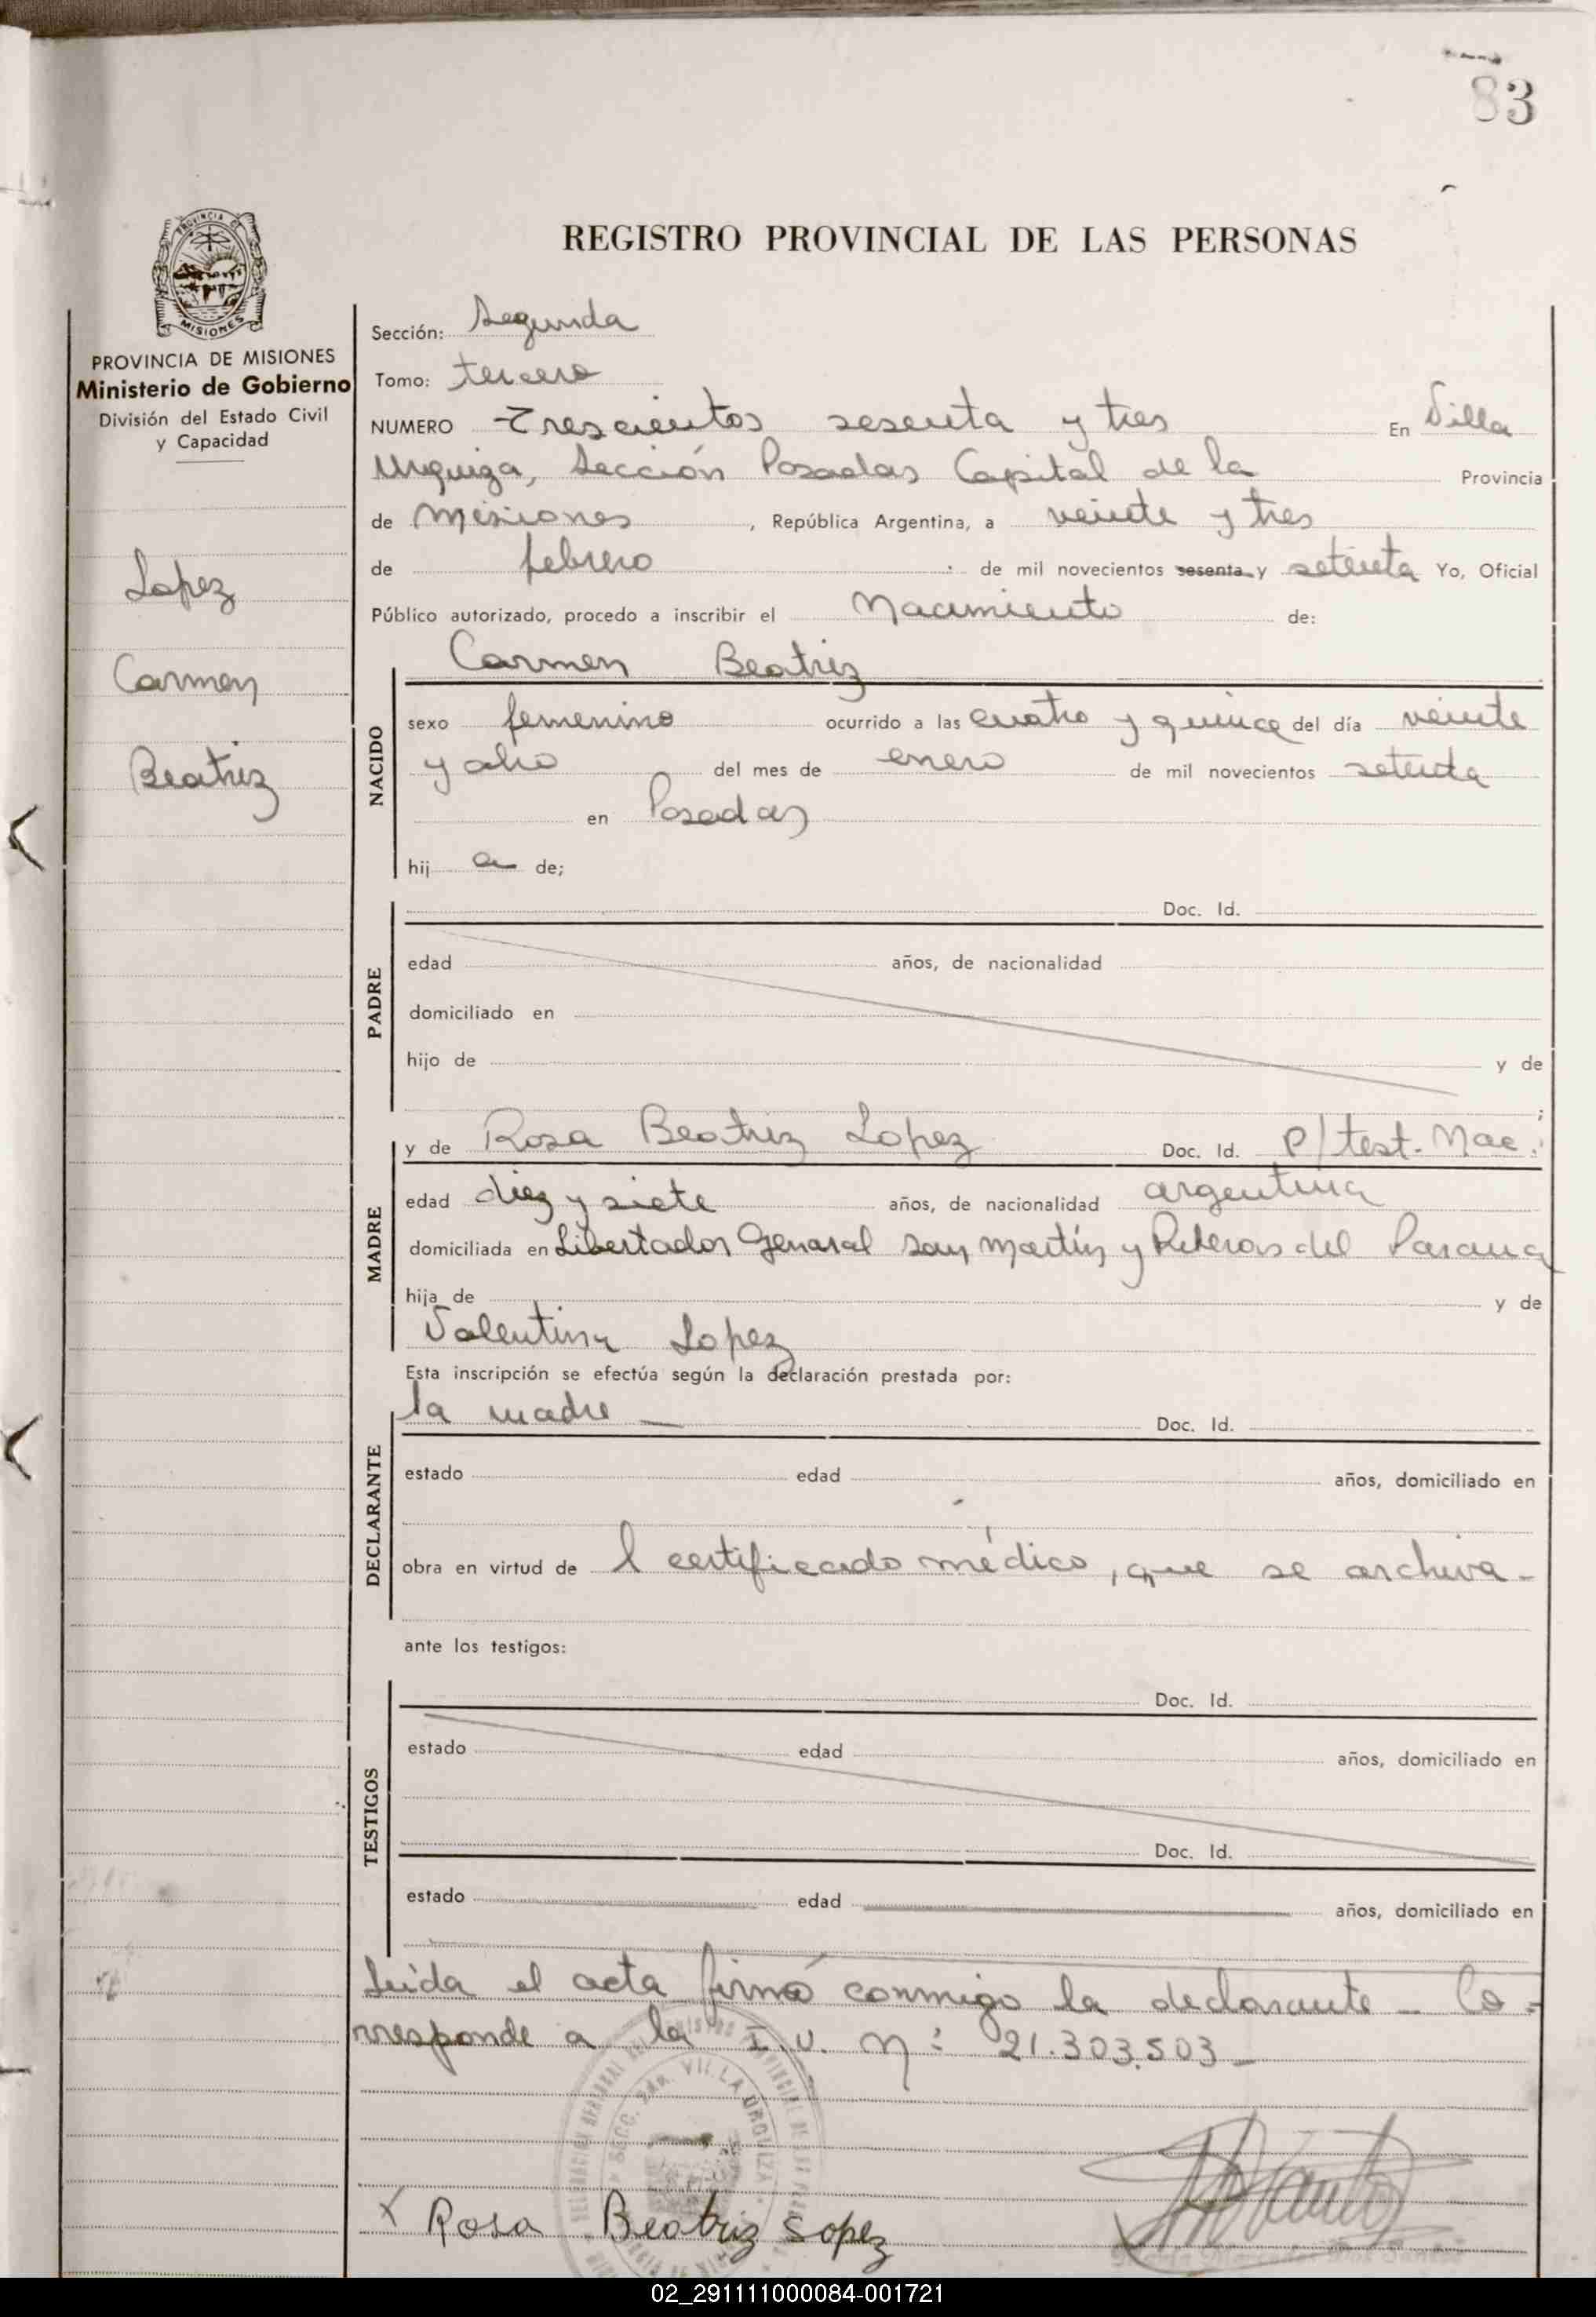 83
REGISTRO PROVINCIAL DE LAS PERSONAS
PROVINCIA DE MISIONES
Ministerio de Gobierno
División del Estado Civil
y Capacidad
Lopez
Carmen
Beatriz
Sección: Segunda
Tomo: tercero
NUMERO Trescientos sesenta y tres En Villa
Urquiza, Sección Posadas Capital de la Provincia
de Misiones, República Argentina, a veinte y tres
de febrero de mil novecientos sesenta y setenta Yo, Oficial
Público autorizado, procedo a inscribir el Nacimiento de:
Carmen Beatriz
NACIDO
sexo femenino ocurrido a las cuatro y quince del día veinte
y ocho del mes de enero de mil novecientos setenta
en Posadas
hij a de;
PADRE
Doc. Id.
edad años, de nacionalidad
domiciliado en
hijo de y de
;
MADRE
y de Rosa Beatriz Lopez Doc. Id. P/test. Nac.
edad diez y siete años, de nacionalidad argentina
domiciliada en Libertador General San Martín y Riberas del Parana
hija de y de
Valentina Lopez
Esta inscripción se efectúa según la declaración prestada por:
DECLARANTE
la madre — Doc. Id.
estado edad años, domiciliado en
obra en virtud de l certificado médico, que se archiva.-
ante los testigos:
TESTIGOS
Doc. Id.
estado edad años, domiciliado en
Doc. Id.
estado edad años, domiciliado en
Leída el acta firmó conmigo la declarante - Co=
rresponde a la I.U. Nº: 21.303.503-
X Rosa Beatriz Lopez
02_291111000084-001721